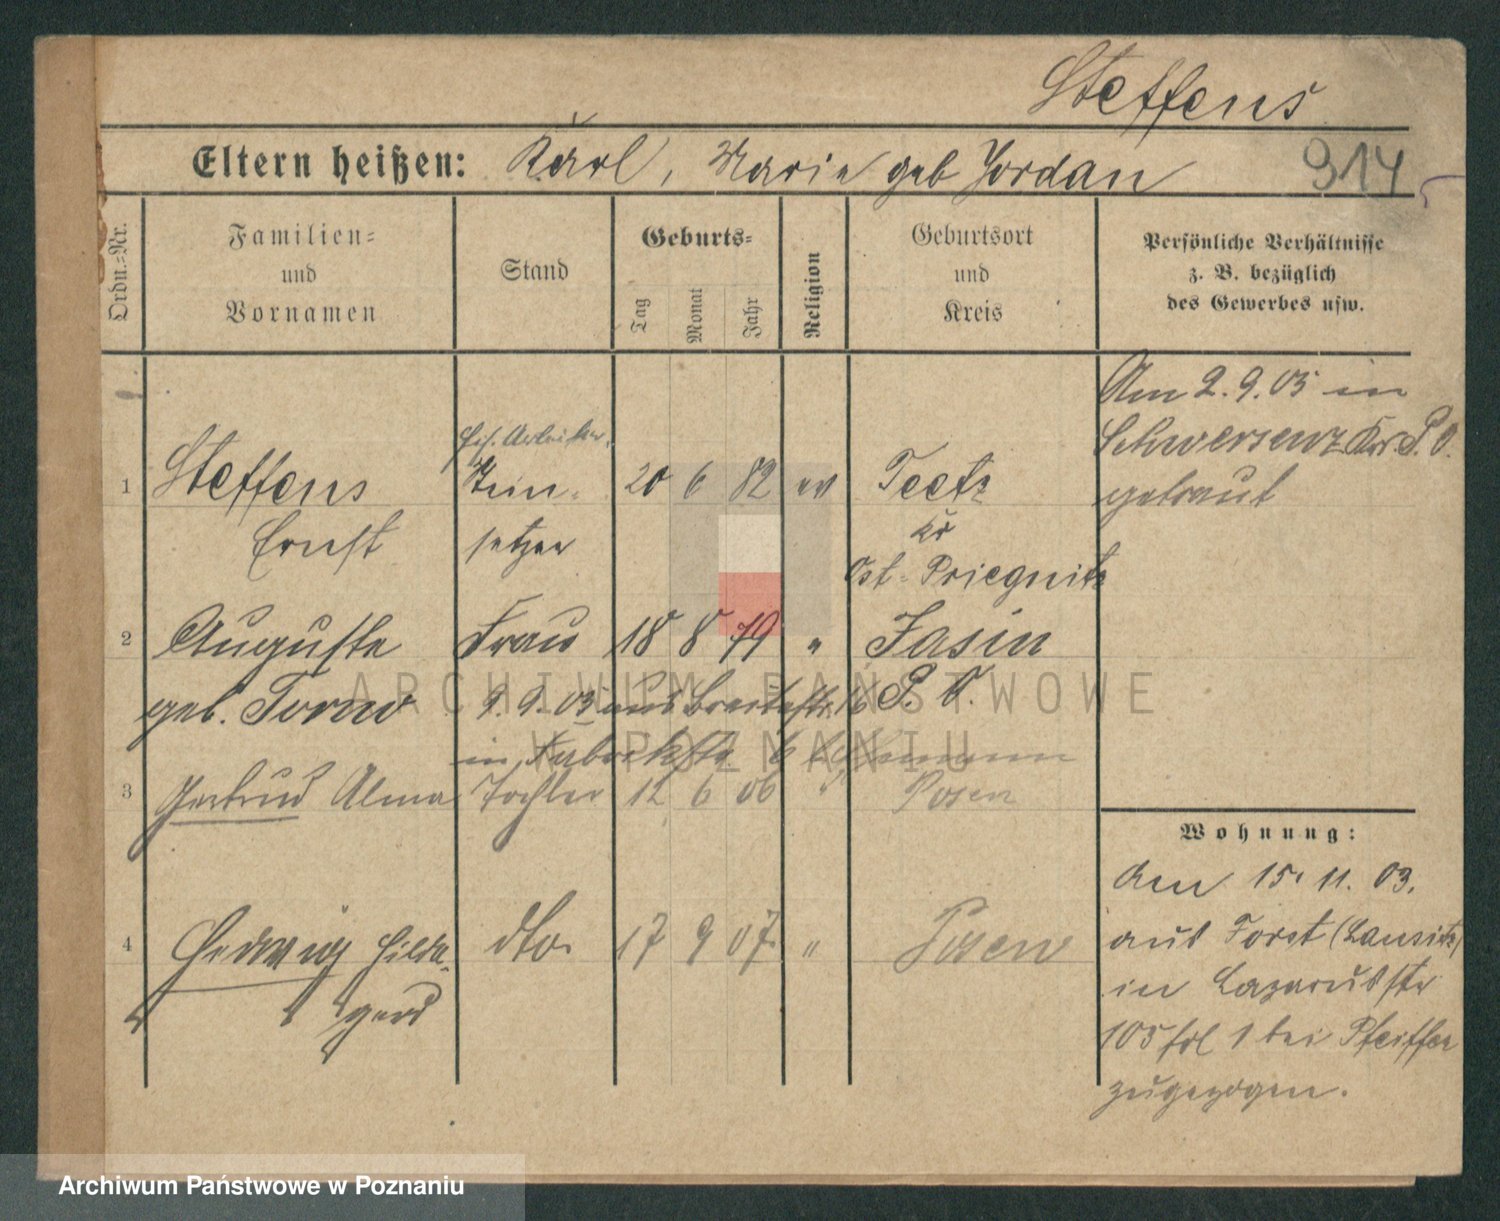 Steffens
Eltern heißen: Karl, Marie geb Jordan
914
Ordn.-Nr.
Familien-
und
Vornamen
Stand
Geburts-
Tag
Monat
Jahr
Religion
Geburtsort
und
Kreis
Persönliche Verhältnisse
z. B. bezüglich
des Gewerbes usw.
Am 2.9.05 in
Schwersenz Krs. P. O.
getraut
Arbeiter
1 Steffens Stein- 20 6 82 ev Teetz
Ernst setzer Kr
Ost-Priegnitz
2 Auguste Frau 18 8 79 " Jasin
geb. Torno 9.9.05 aus Breitestr. 16 P. O.
in Fabrikstr. 6
3 Gertrud Alma Tochter 12 6 06 " Posen
4 Hedwig Hilde- dto. 17 9 07 " Posen
gard
Wohnung:
Am 15. 11. 03.
aus Forst (Lausitz)
in Lazarusstr
105 bei Pfeiffer
zugezogen.
ARCHIWUM PAŃSTWOWE
W POZNANIU
Archiwum Państwowe w Poznaniu